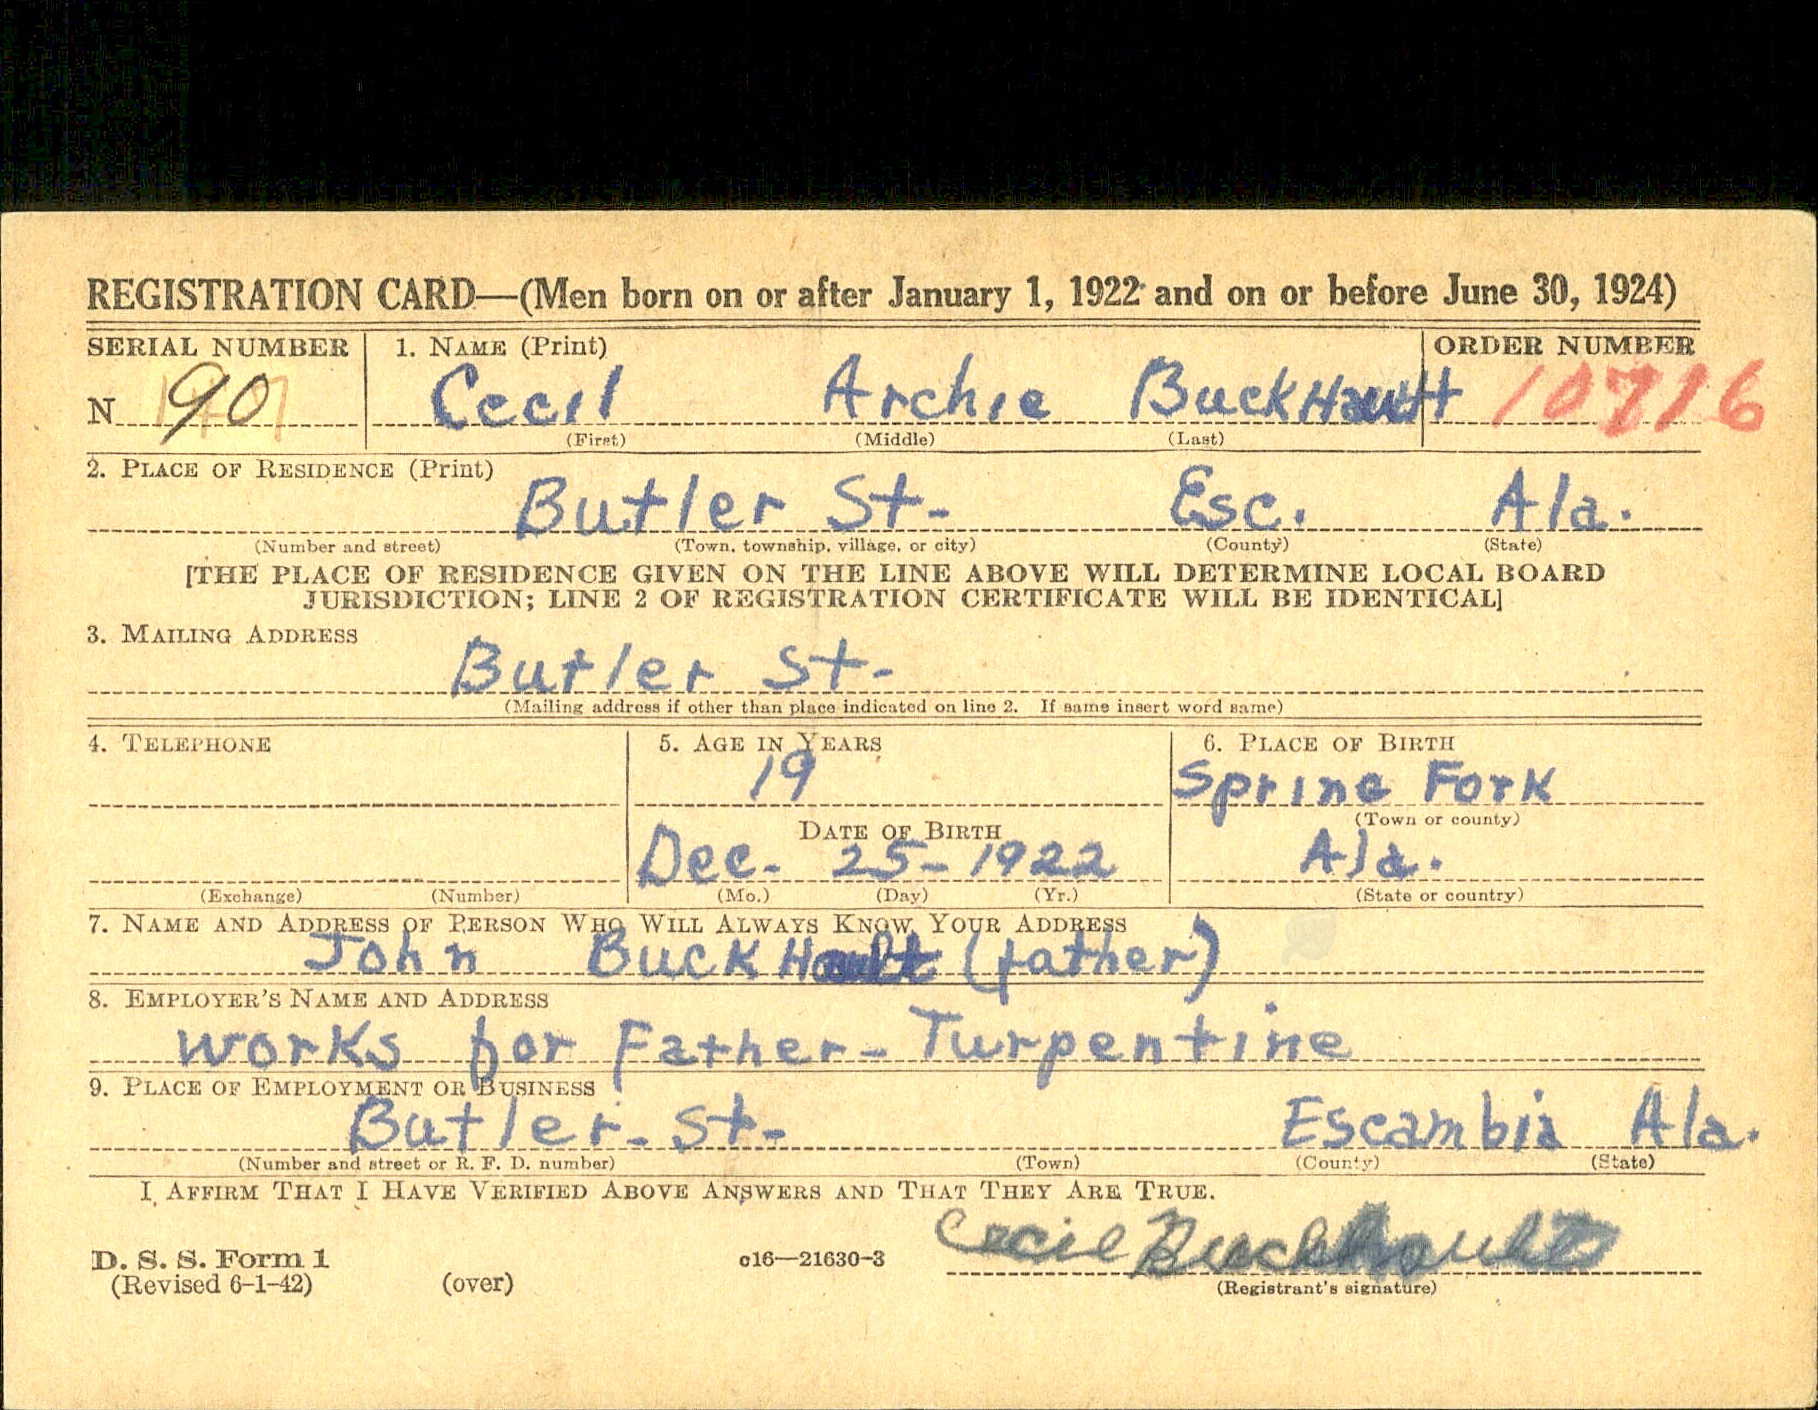 REGISTRATION CARD—(Men born on or after January 1, 1922 and on or before June 30, 1924)
SERIAL NUMBER
1. NAME (Print)
ORDER NUMBER
N 90
Cecil Archie
10716
(First) (Middle) (Last)
2. PLACE OF RESIDENCE (Print)
Butler St- Esc. Ala.
(Number and street) (Town, township, village, or city) (County) (State)
[THE PLACE OF RESIDENCE GIVEN ON THE LINE ABOVE WILL DETERMINE LOCAL BOARD
JURISDICTION; LINE 2 OF REGISTRATION CERTIFICATE WILL BE IDENTICAL]
3. MAILING ADDRESS
Butler St-
(Mailing address if other than place indicated on line 2. If same insert word same)
4. TELEPHONE
(Exchange) (Number)
5. AGE IN YEARS
19
DATE OF BIRTH
Dec. 25-1922
(Mo.) (Day) (Yr.)
6. PLACE OF BIRTH
Fork
(Town or county)
Ala.
(State or country)
7. NAME AND ADDRESS OF PERSON WHO WILL ALWAYS KNOW YOUR ADDRESS
John (father)
8. EMPLOYER'S NAME AND ADDRESS
works for Father- Turpentine
9. PLACE OF EMPLOYMENT OR BUSINESS
Butler. St- Escambia Ala.
(Number and street or R. F. D. number) (Town) (County) (State)
I AFFIRM THAT I HAVE VERIFIED ABOVE ANSWERS AND THAT THEY ARE TRUE.
Cecil
D. S. S. Form 1
(Revised 6-1-42) (over) c16—21630-3
(Registrant's signature)